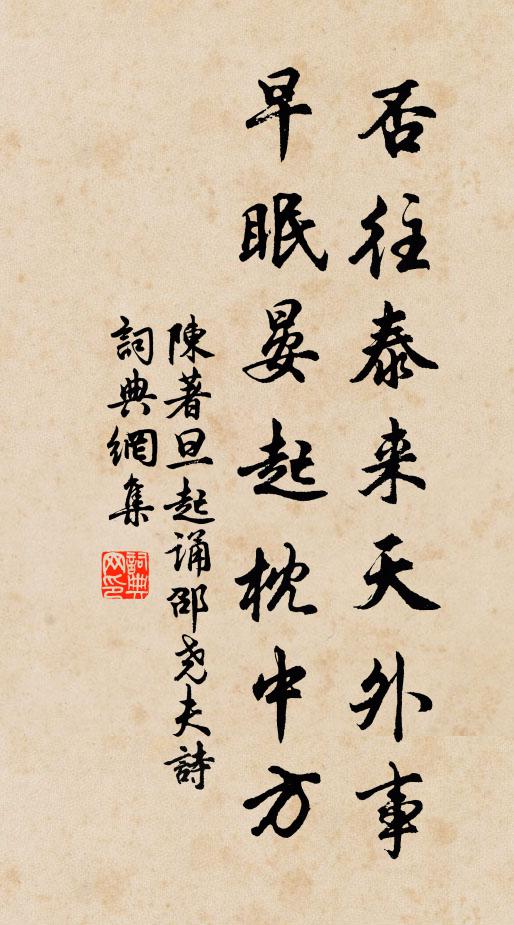 否往泰来天外事
早眠晏起枕中方
陳著旦起誦邵尧夫詩
詞典網集
詞典网印